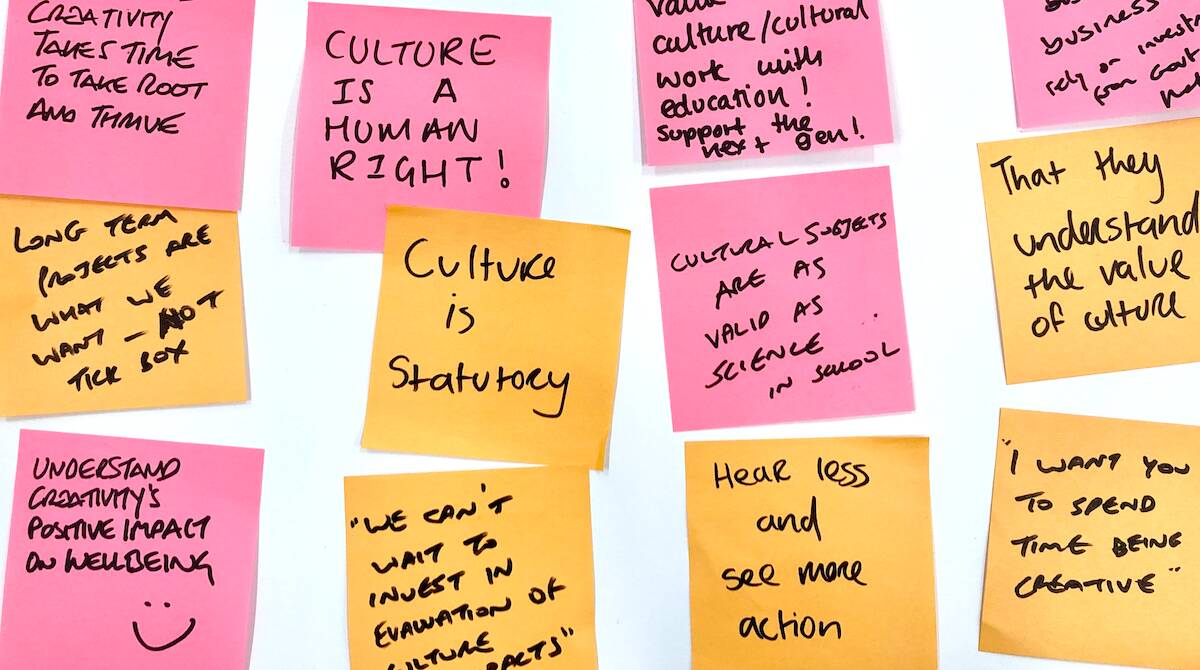 CREATIVITY
TAKES TIME
TO TAKE ROOT
AND THRIVE
CULTURE
IS A
HUMAN
RIGHT!
value
culture/cultural
work with
education!
support the
next gen!
business
rely on
from Govt
That they
understand
the value
of culture
LONG TERM
PROJECTS ARE
WHAT WE
WANT – NOT
TICK BOX
Culture
is
Statutory
CULTURAL SUBJECTS
ARE AS
VALID AS
SCIENCE
IN SCHOOL
UNDERSTAND
CREATIVITY'S
POSITIVE IMPACT
ON WELLBEING
"WE CAN'T
WAIT TO
INVEST IN
EVALUATION OF
CULTURE
Hear less
and
see more
action
"I WANT YOU
TO SPEND
TIME BEING
CREATIVE"